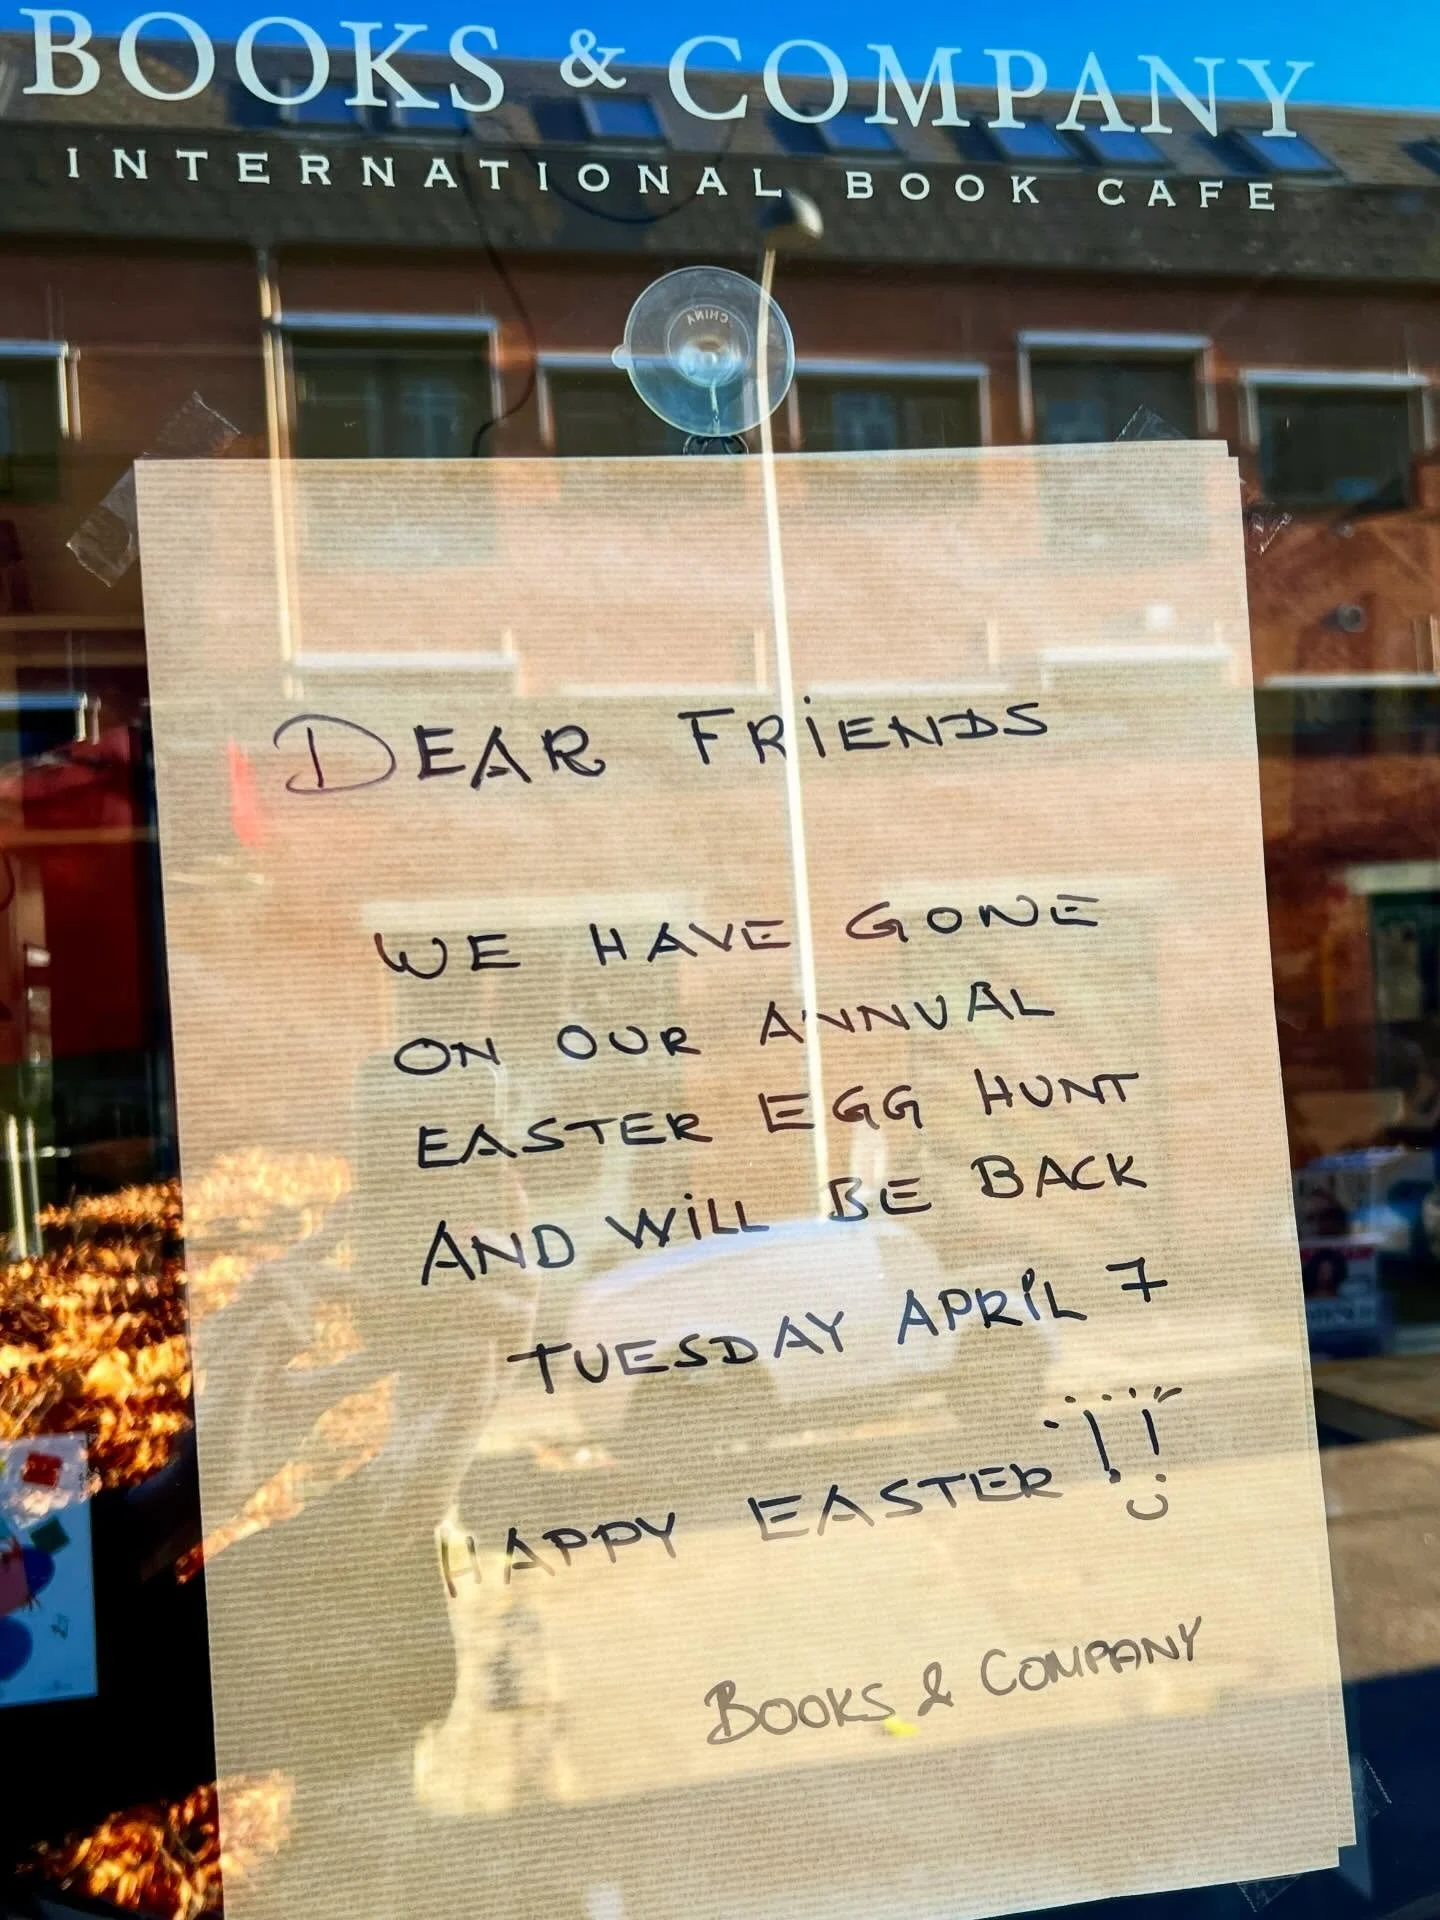 BOOKS & COMPANY
INTERNATIONAL BOOK CAFE
CHINA
DEAR FRIENDS
WE HAVE GONE
ON OUR ANNUAL
EASTER EGG HUNT
AND WILL BE BACK
TUESDAY APRIL 7
HAPPY EASTER !!
BOOKS & COMPANY